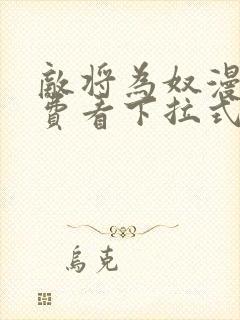 敵將為奴漫
費看下拉式
烏克